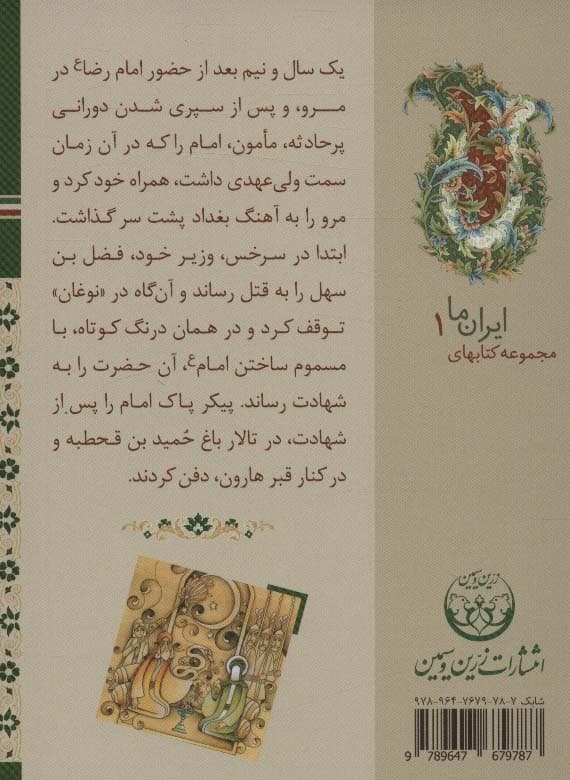 یک سال و نیم بعد از حضور امام رضا؏ در
مرو، و پس از سپری شدن دورانی
پرحادثه، مأمون، امام را که در آن زمان
سمت ولی‌عهدی داشت، همراه خود کرد و
مرو را به آهنگ بغداد پشت سر گذاشت.
ابتدا در سرخس، وزیر خود، فضل بن
سهل را به قتل رساند و آن‌گاه در «نوغان»
توقف کرد و در همان درنگ کوتاه، با
مسموم ساختن امام؏، آن حضرت را به
شهادت رساند. پیکر پاک امام را پس از
شهادت، در تالار باغ حُمید بن قحطبه و
در کنار قبر هارون، دفن کردند.
ایران ما
۱
مجموعه کتابهای
زرین و سیمین
انتشارات زرّین و سیمین
شابک ۷-۷۸-۷۶۷۹-۹۶۴-۹۷۸
9 789647 679787